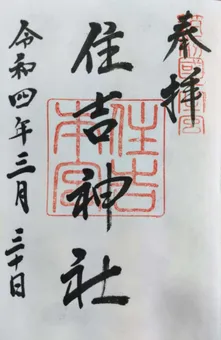 奉拝
住吉神社
令和四年三月三十日
住吉本宮